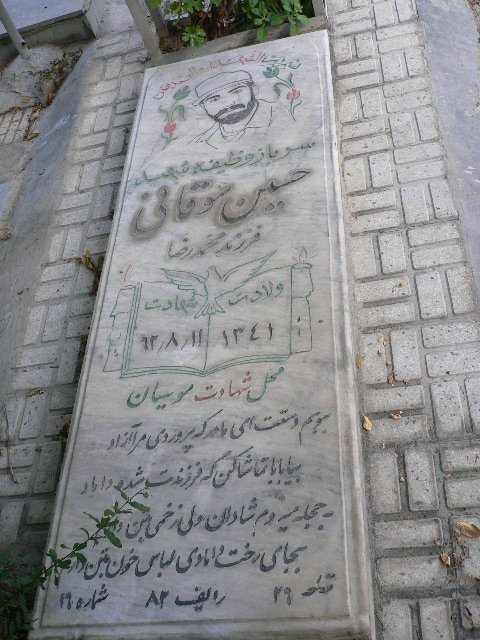 سرباز وظیفه شهید
حسین سوقانی
فرزند محمدرضا
ولادت شهادت
۱۳۴۱ ۶۲/۸/۱۱
محل شهادت موسیان
ببوسم دستت ای مادر که پروردی مرا آزاد
بیا بابا تماشا کن که فرزندت شده داماد
به حجله میروم شادان ولی زخمی بتن دارم
بجای رخت دامادی لباس خون بتن دارم
قطعه ۲۶ ردیف ۸۲ شماره ۲۶